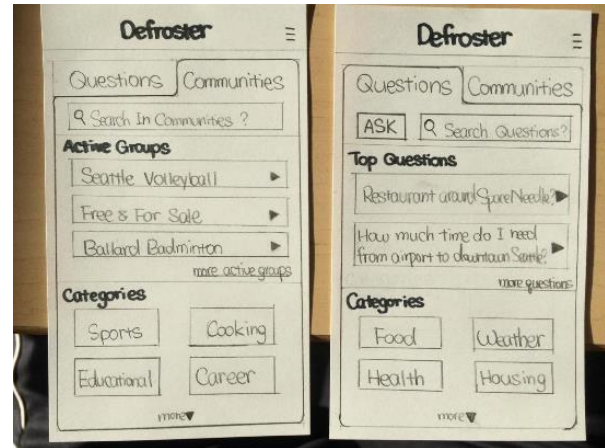 Defroster
Questions Communities
Search In Communities ?
Active Groups
Seattle Volleyball
Free & For Sale
Ballard Badminton
more active groups
Categories
Sports Cooking
Educational Career
more
Defroster
Questions Communities
ASK Search Questions?
Top Questions
Restaurant around Space Needle?
How much time do I need
from airport to downtown Seattle?
more questions
Categories
Food Weather
Health Housing
more